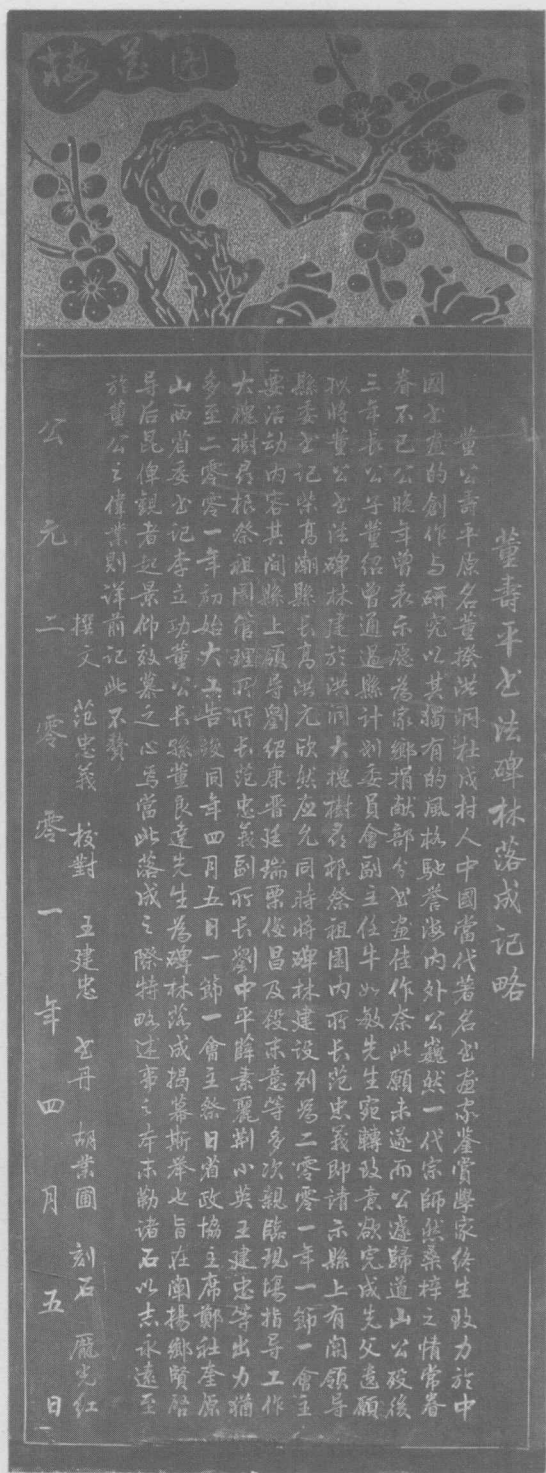 梅花图
董壽平书法碑林落成记略
董公壽平原名董揆洪洞杜戍村人中國當代著名书画家鉴賞學家终生致力於中
國书画的創作与研究以其独有的風格馳誉海内外公巍然一代宗師然桑梓之情常眷
眷不已公晚年曾表示愿为家鄉捐献部分书画佳作奈此願未遂而公遽歸道山公殁後
三年長公子董绍曾通過縣计划委員會副主任牛如敏先生宛轉致意欲完成先父遗願
拟將董公书法碑林建於洪同大槐樹尋根祭祖園内所长范忠義即请示縣上有関領导
縣委书记柴高潮縣长高洪元欣然应允同時將碑林建设列为二零零一年一節一會主
要活动内容其间縣上領导劉绍康晋廷瑞栗俊昌及段末意等多次親臨现場指导工作
大槐樹尋根祭祖園管理所所长范忠義副所长劉中平薛素麗荆小英王建忠等出力猶
多至二零零一年初始大工告竣同年四月五日一節一會主祭日省政協主席鄭社奎原
山西省委书记李立功董公长孫董良達先生为碑林落成揭幕斯举也旨在闡揚鄉賢啓
导后昆俾觀者起景仰效慕之心焉當此落成之際特略述事之本末勒诸石以志永遠至
於董公之偉業則详前记此不赘
撰文 范忠義 校對 王建忠 书丹 胡業圃 刻石 龐光红
公元二零零一年四月五日